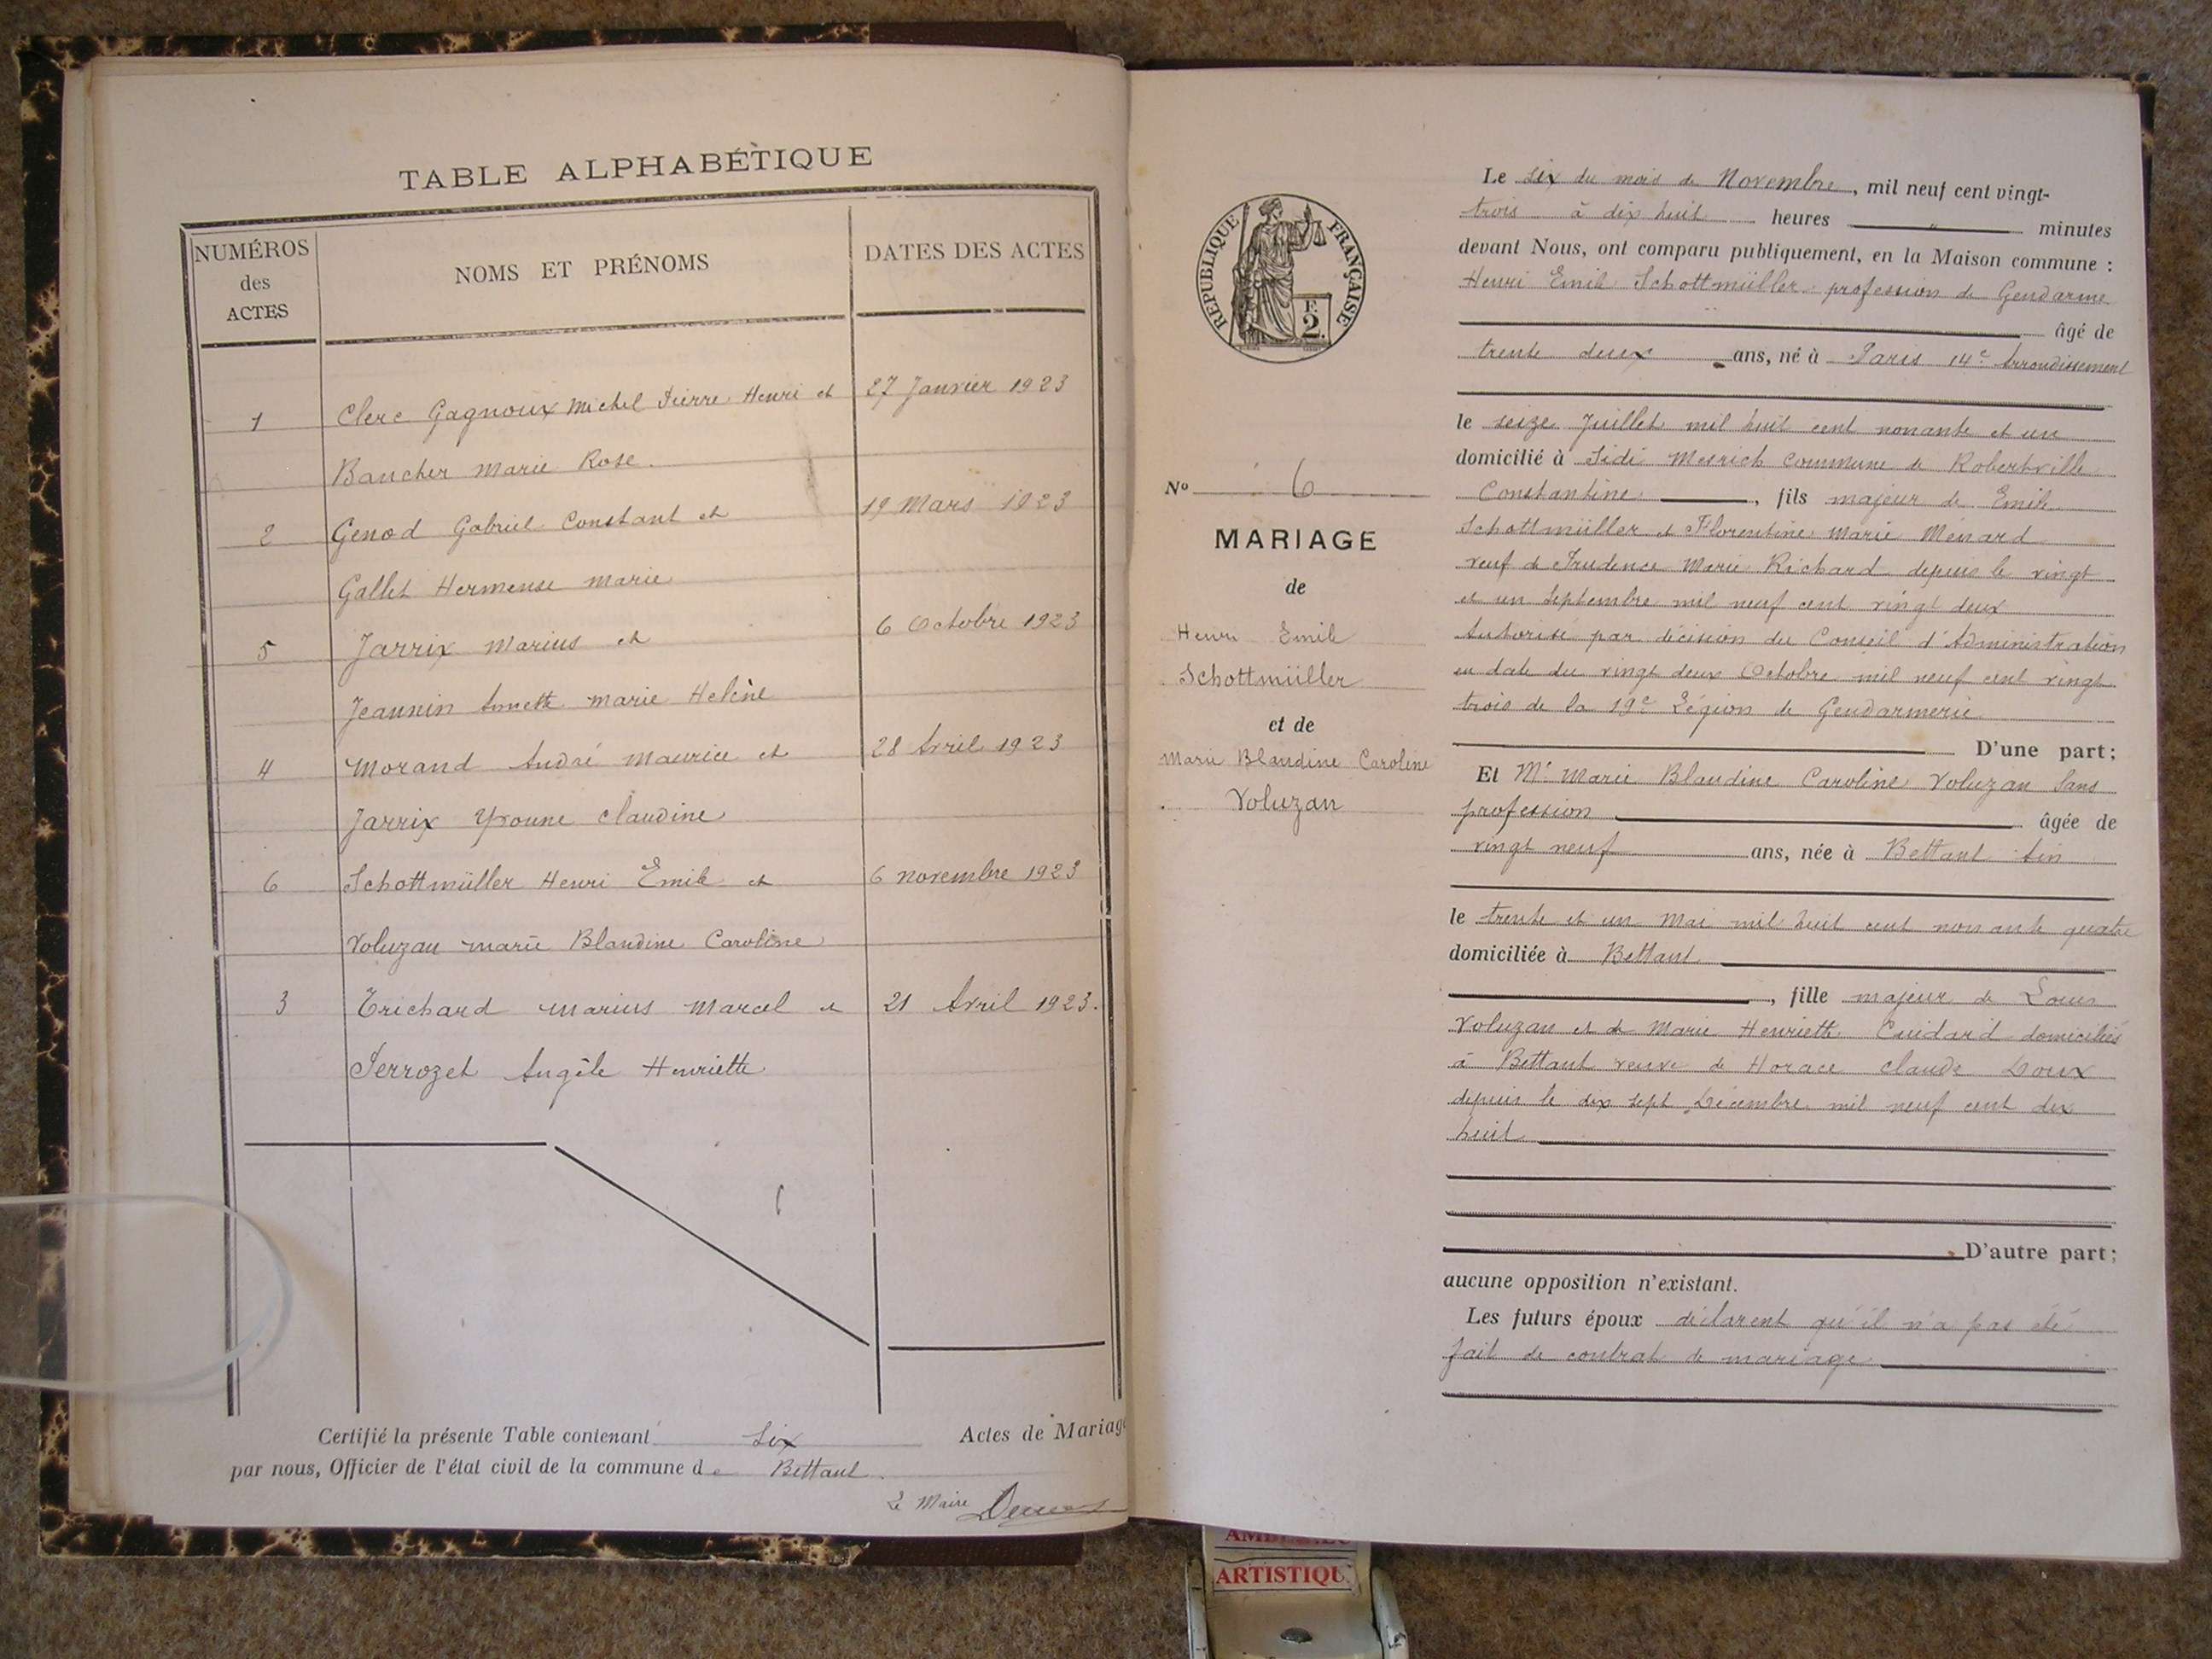 TABLE ALPHABÉTIQUE
NUMÉROS
des
ACTES
NOMS ET PRÉNOMS
DATES DES ACTES
1 Clerc Gagnoux Michel Pierre Henri et 27 Janvier 1923
Baucher Marie Rose.
2 Genod Gabriel Constant et 19 Mars 1923
Gallet Hermense Marie
5 Jarrix Marius et 6 Octobre 1923
Jeannin Annette Marie Helène
4 Morand André Maurice et 28 Avril 1923
Jarrix Yvonne Claudine
6 Schottmüller Henri Emile et 6 novembre 1923
Voluzan Marie Blandine Caroline
3 Trichard Marius Marcel et 21 Avril 1923.
Perrozet Angèle Henriette
Certifié la présente Table contenant Six Actes de Mariag
par nous, Officier de l'état civil de la commune de Bettant.
Le Maire
RÉPUBLIQUE FRANÇAISE
F.
2.
No 6
MARIAGE
de
Henri Emile
Schottmüller
et de
Marie Blandine Caroline
Voluzan
Le six du mois de Novembre, mil neuf cent vingt-
trois à dix huit heures " minutes
devant Nous, ont comparu publiquement, en la Maison commune :
Henri Emile Schottmüller profession de Gendarme
âgé de
trente deux ans, né à Paris 14e Arrondissement
le seize Juillet mil huit cent nonante et un
domicilié à Sidi Mesrich commune de Robertville
Constantine, fils majeur de Emile
Schottmüller et Florentine Marie Ménard
veuf de Prudence Marie Richard depuis le vingt
et un Septembre mil neuf cent vingt deux
Autorisé par décision du Conseil d'Administration
en date du vingt deux Octobre mil neuf cent vingt
trois de la 19e Légion de Gendarmerie
D'une part;
Et Me Marie Blandine Caroline Voluzan Sans
profession âgée de
vingt neuf ans, née à Bettant Ain
le trente et un Mai mil huit cent nonante quatre
domiciliée à Bettant
, fille majeur de Louis
Voluzan et de Marie Henriette Cuidard domiciliés
à Bettant veuve de Horace Claude Doux
depuis le dix sept Décembre mil neuf cent dix
huit
D'autre part;
aucune opposition n'existant.
Les futurs époux déclarent qu'il n'a pas été
fait de contrat de mariage
ARTISTIQU